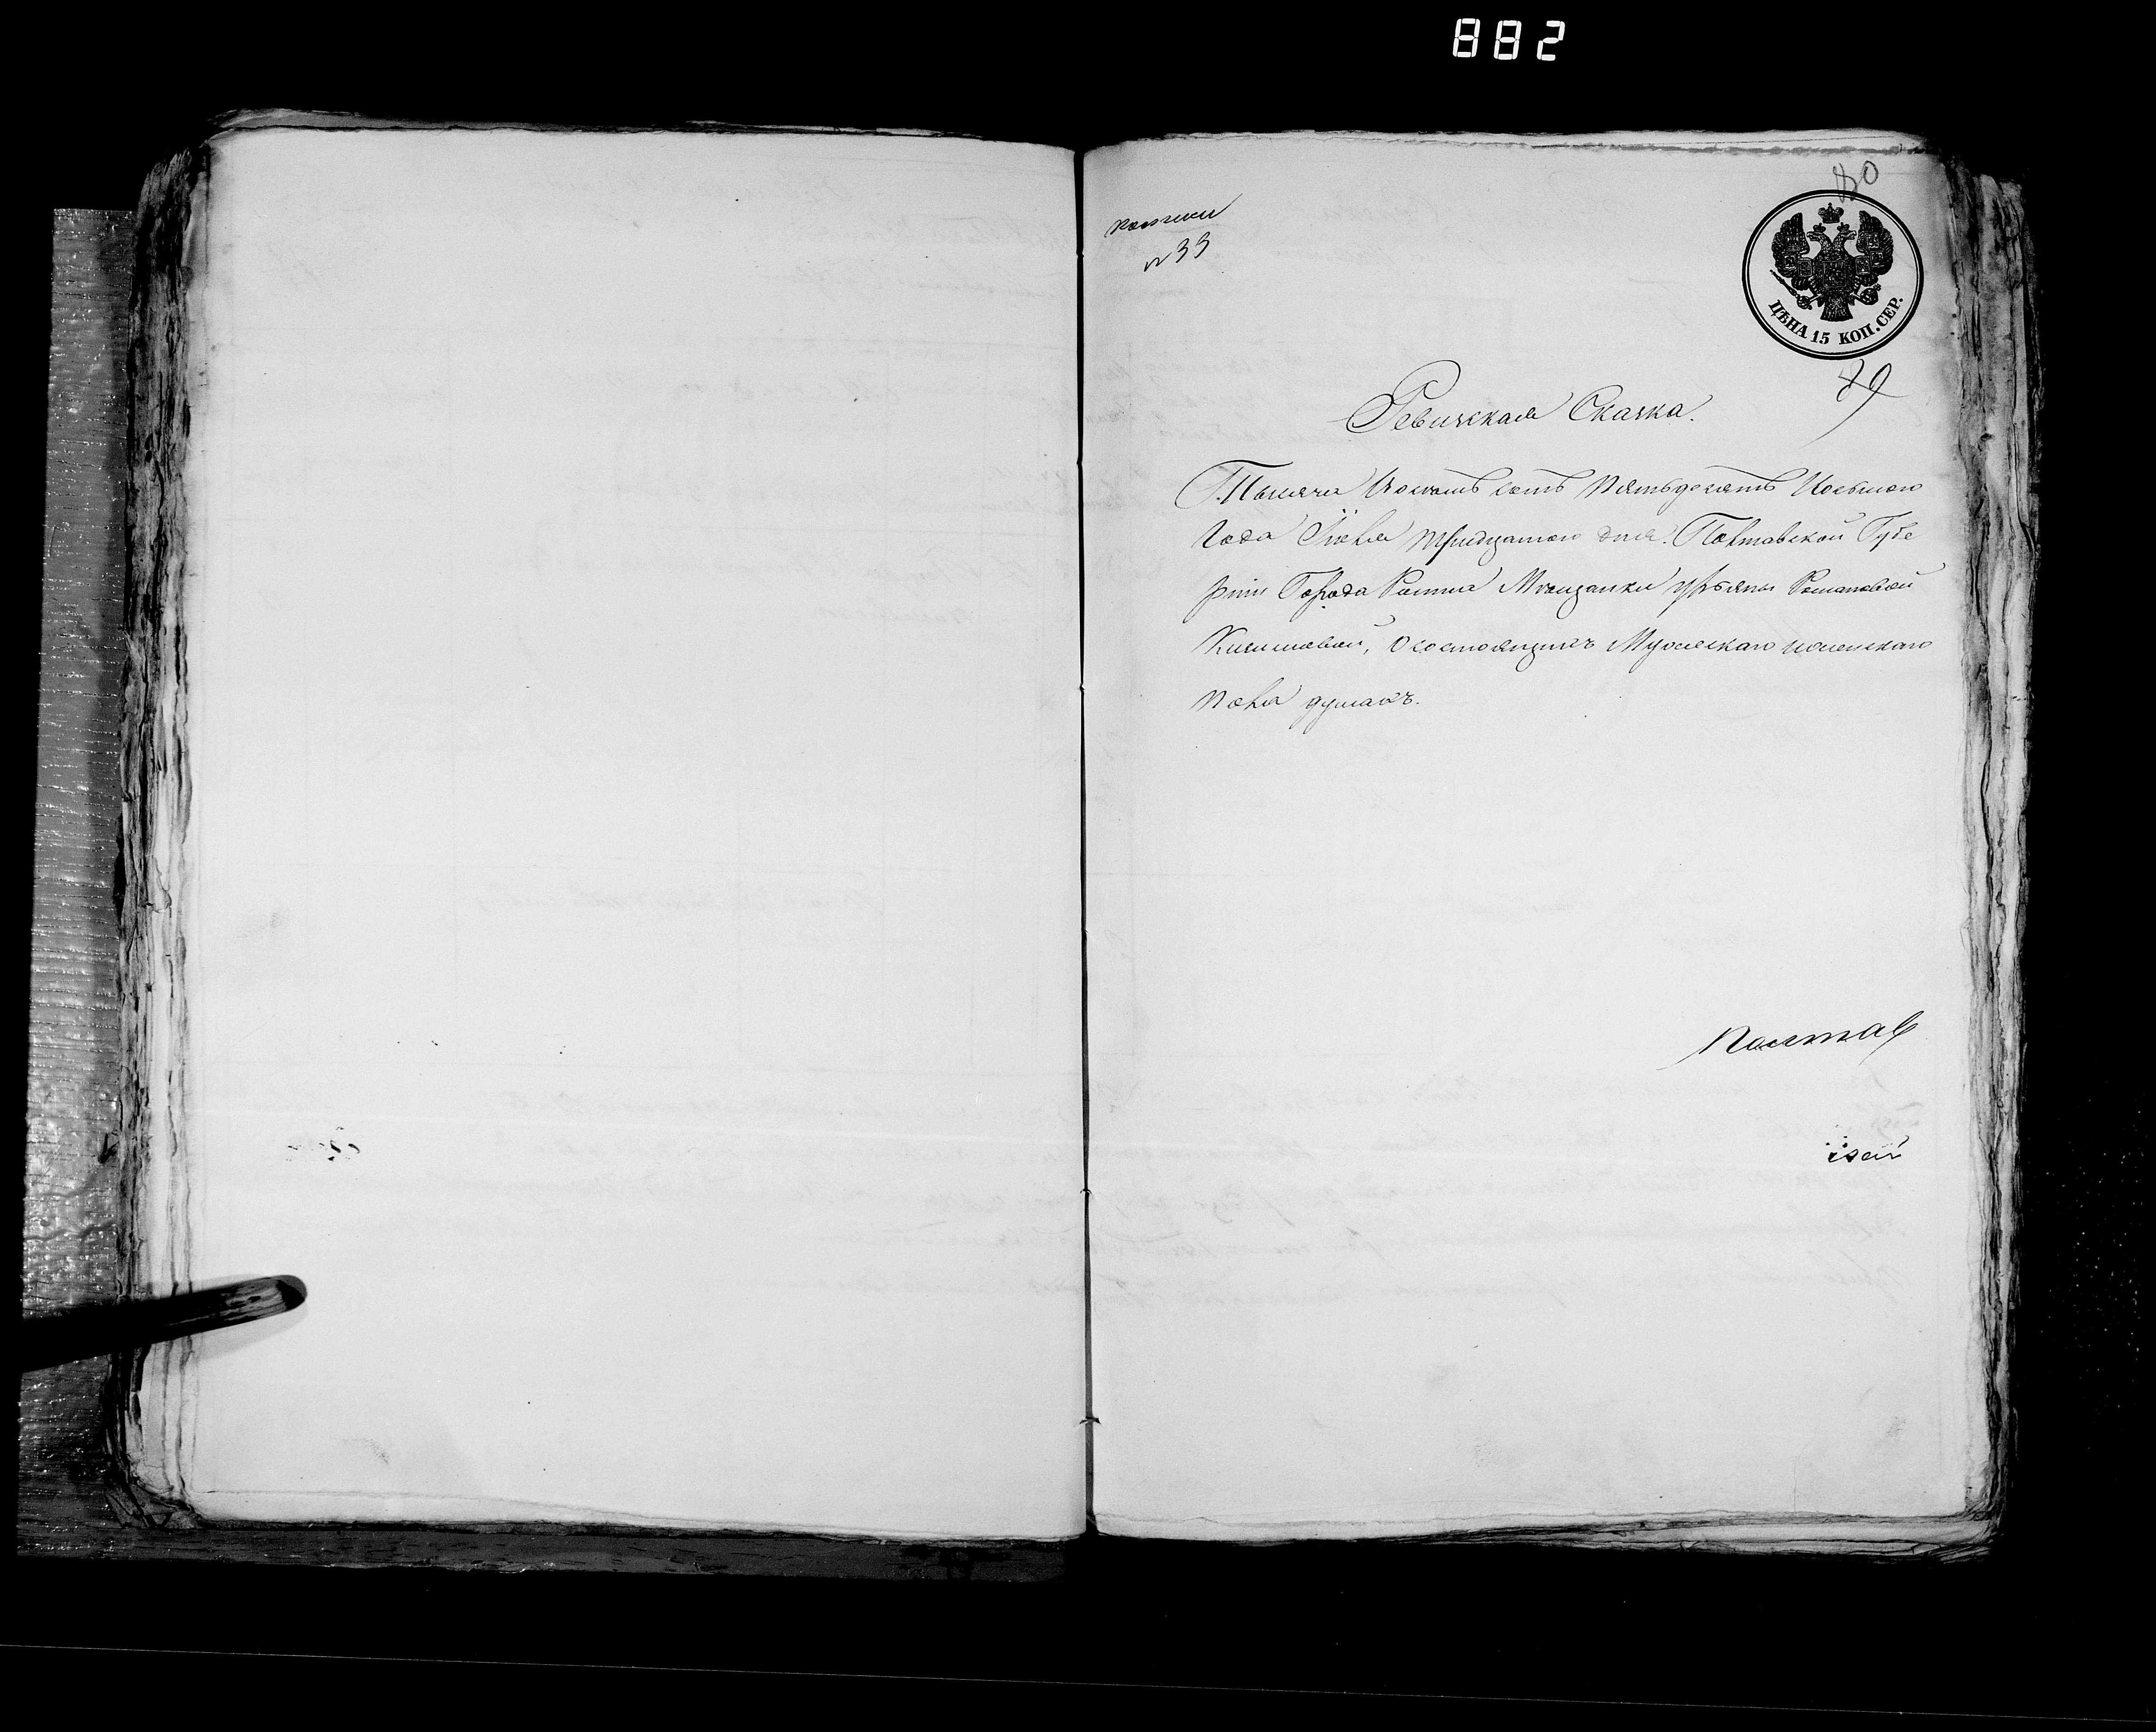 882
80
№ 33
ЦѢНА 15 КОП. СЕР.
79
Ревизская Сказка.
Тысяча Восемь сотъ Пятьдесятъ Восьмого
Года Июня тридцатого дня. Полтавской Губе
рніи Города Ромна Мѣщанки Ульяны Романовой
о состоящихъ Мужескаго и женскаго
пола душахъ.
Полтав
ізой